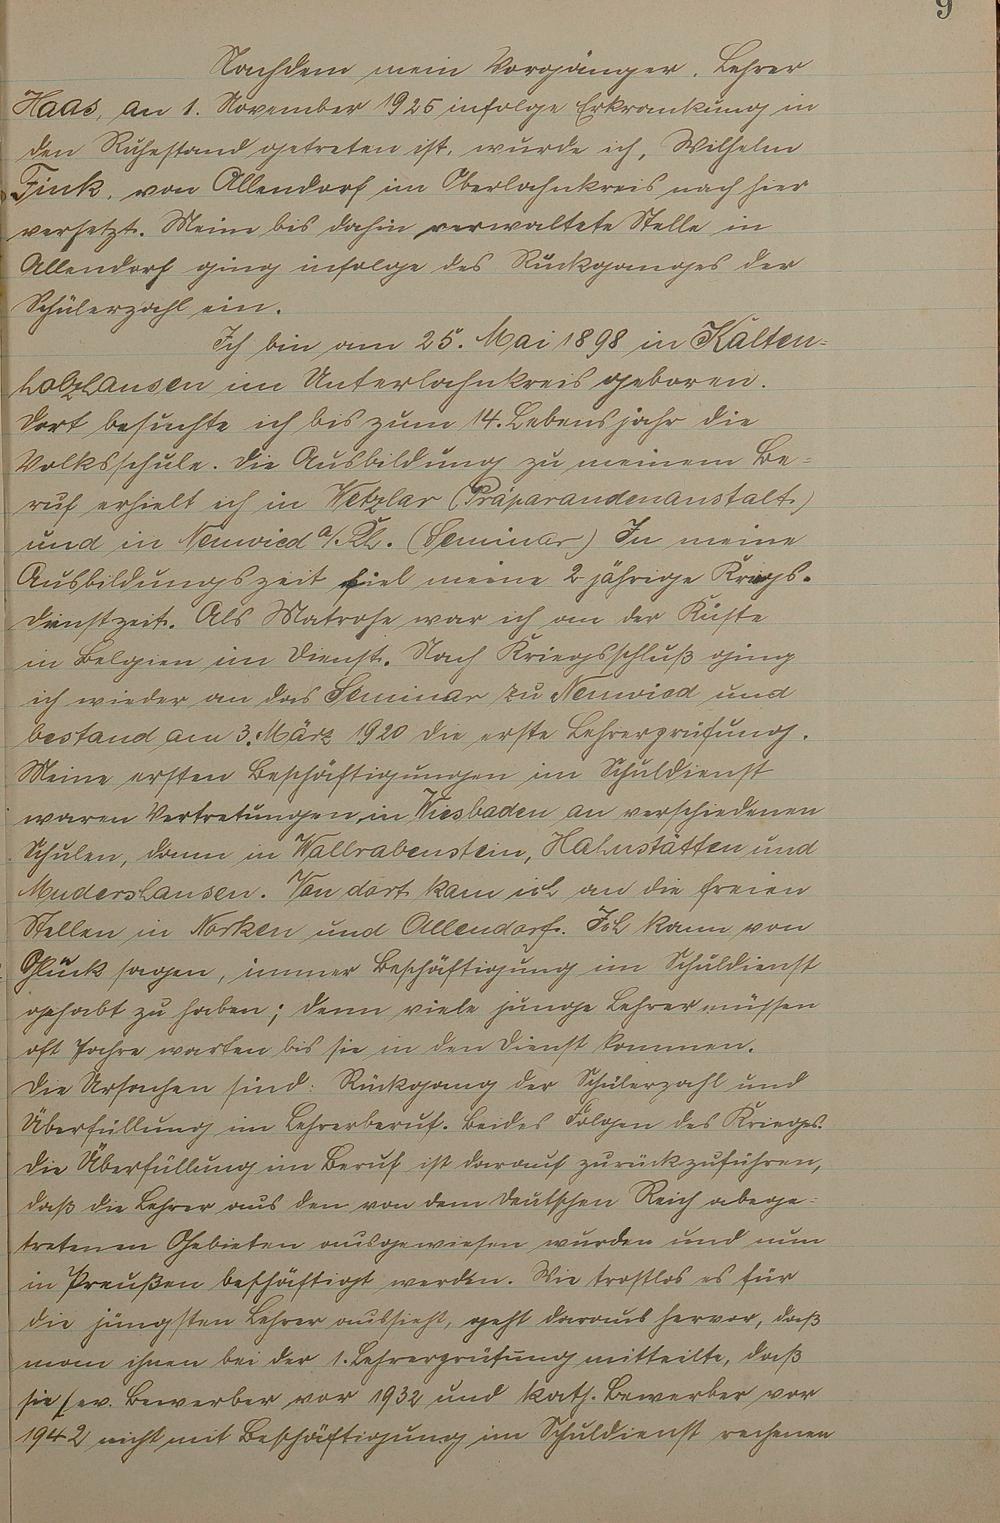 9
Nachdem mein Vorgänger, Lehrer
Haas, an 1. November 1925 infolge Erkrankung in
den Ruhestand getreten ist, wurde ich, Wilhelm
Fink, von Allendorf im Oberlahnkreis nach hier
versetzt. Meine bis dahin verwaltete Stelle in
Allendorf ging infolge des Rückganges der
Schülerzahl ein.
Ich bin am 25. Mai 1898 in Kalten=
holzhausen im Unterlahnkreis geboren.
Dort besuchte ich bis zum 14. Lebensjahr die
Volksschule. Die Ausbildung zu meinem Be=
ruf erhielt ich in Wetzlar (Präparandenanstalt)
und in Neuwied a/Rh. (Seminar) In meine
Ausbildungszeit fiel meine 2 jährige Kriegs=
dienstzeit. Als Matrose war ich an der Küste
in Belgien im Dienst. Nach Kriegsschluß ging
ich wieder an das Seminar zu Neuwied und
bestand am 3. März 1920 die erste Lehrerprüfung.
Meine ersten Beschäftigungen im Schuldienst
waren Vertretungen, in Wiesbaden an verschiedenen
Schulen, dann in Wallrabenstein, Hahnstätten und
Mudershausen. Von dort kam ich an die freien
Stellen in Norken und Allendorf. Ich kann von
Glück sagen, immer Beschäftigung im Schuldienst
gehabt zu haben; denn viele junge Lehrer müssen
oft Jahre warten bis sie in den Dienst kommen.
Die Ursachen sind: Rückgang der Schülerzahl und
Überfüllung im Lehrerberuf. Beides Folgen des Krieges.
Die Überfüllung im Beruf ist darauf zurückzuführen,
daß die Lehrer aus den von dem Deutschen Reich abge=
tretenen Gebieten ausgewiesen wurden und nun
in Preußen beschäftigt werden. Wie trostlos es für
die jüngsten Lehrer aussieht, geht daraus hervor, daß
man ihnen bei der 1. Lehrerprüfung mitteilte, daß
sie (ev. Bewerber vor 1932 und kath. Bewerber vor
1942 nicht mit Beschäftigung im Schuldienst rechnen